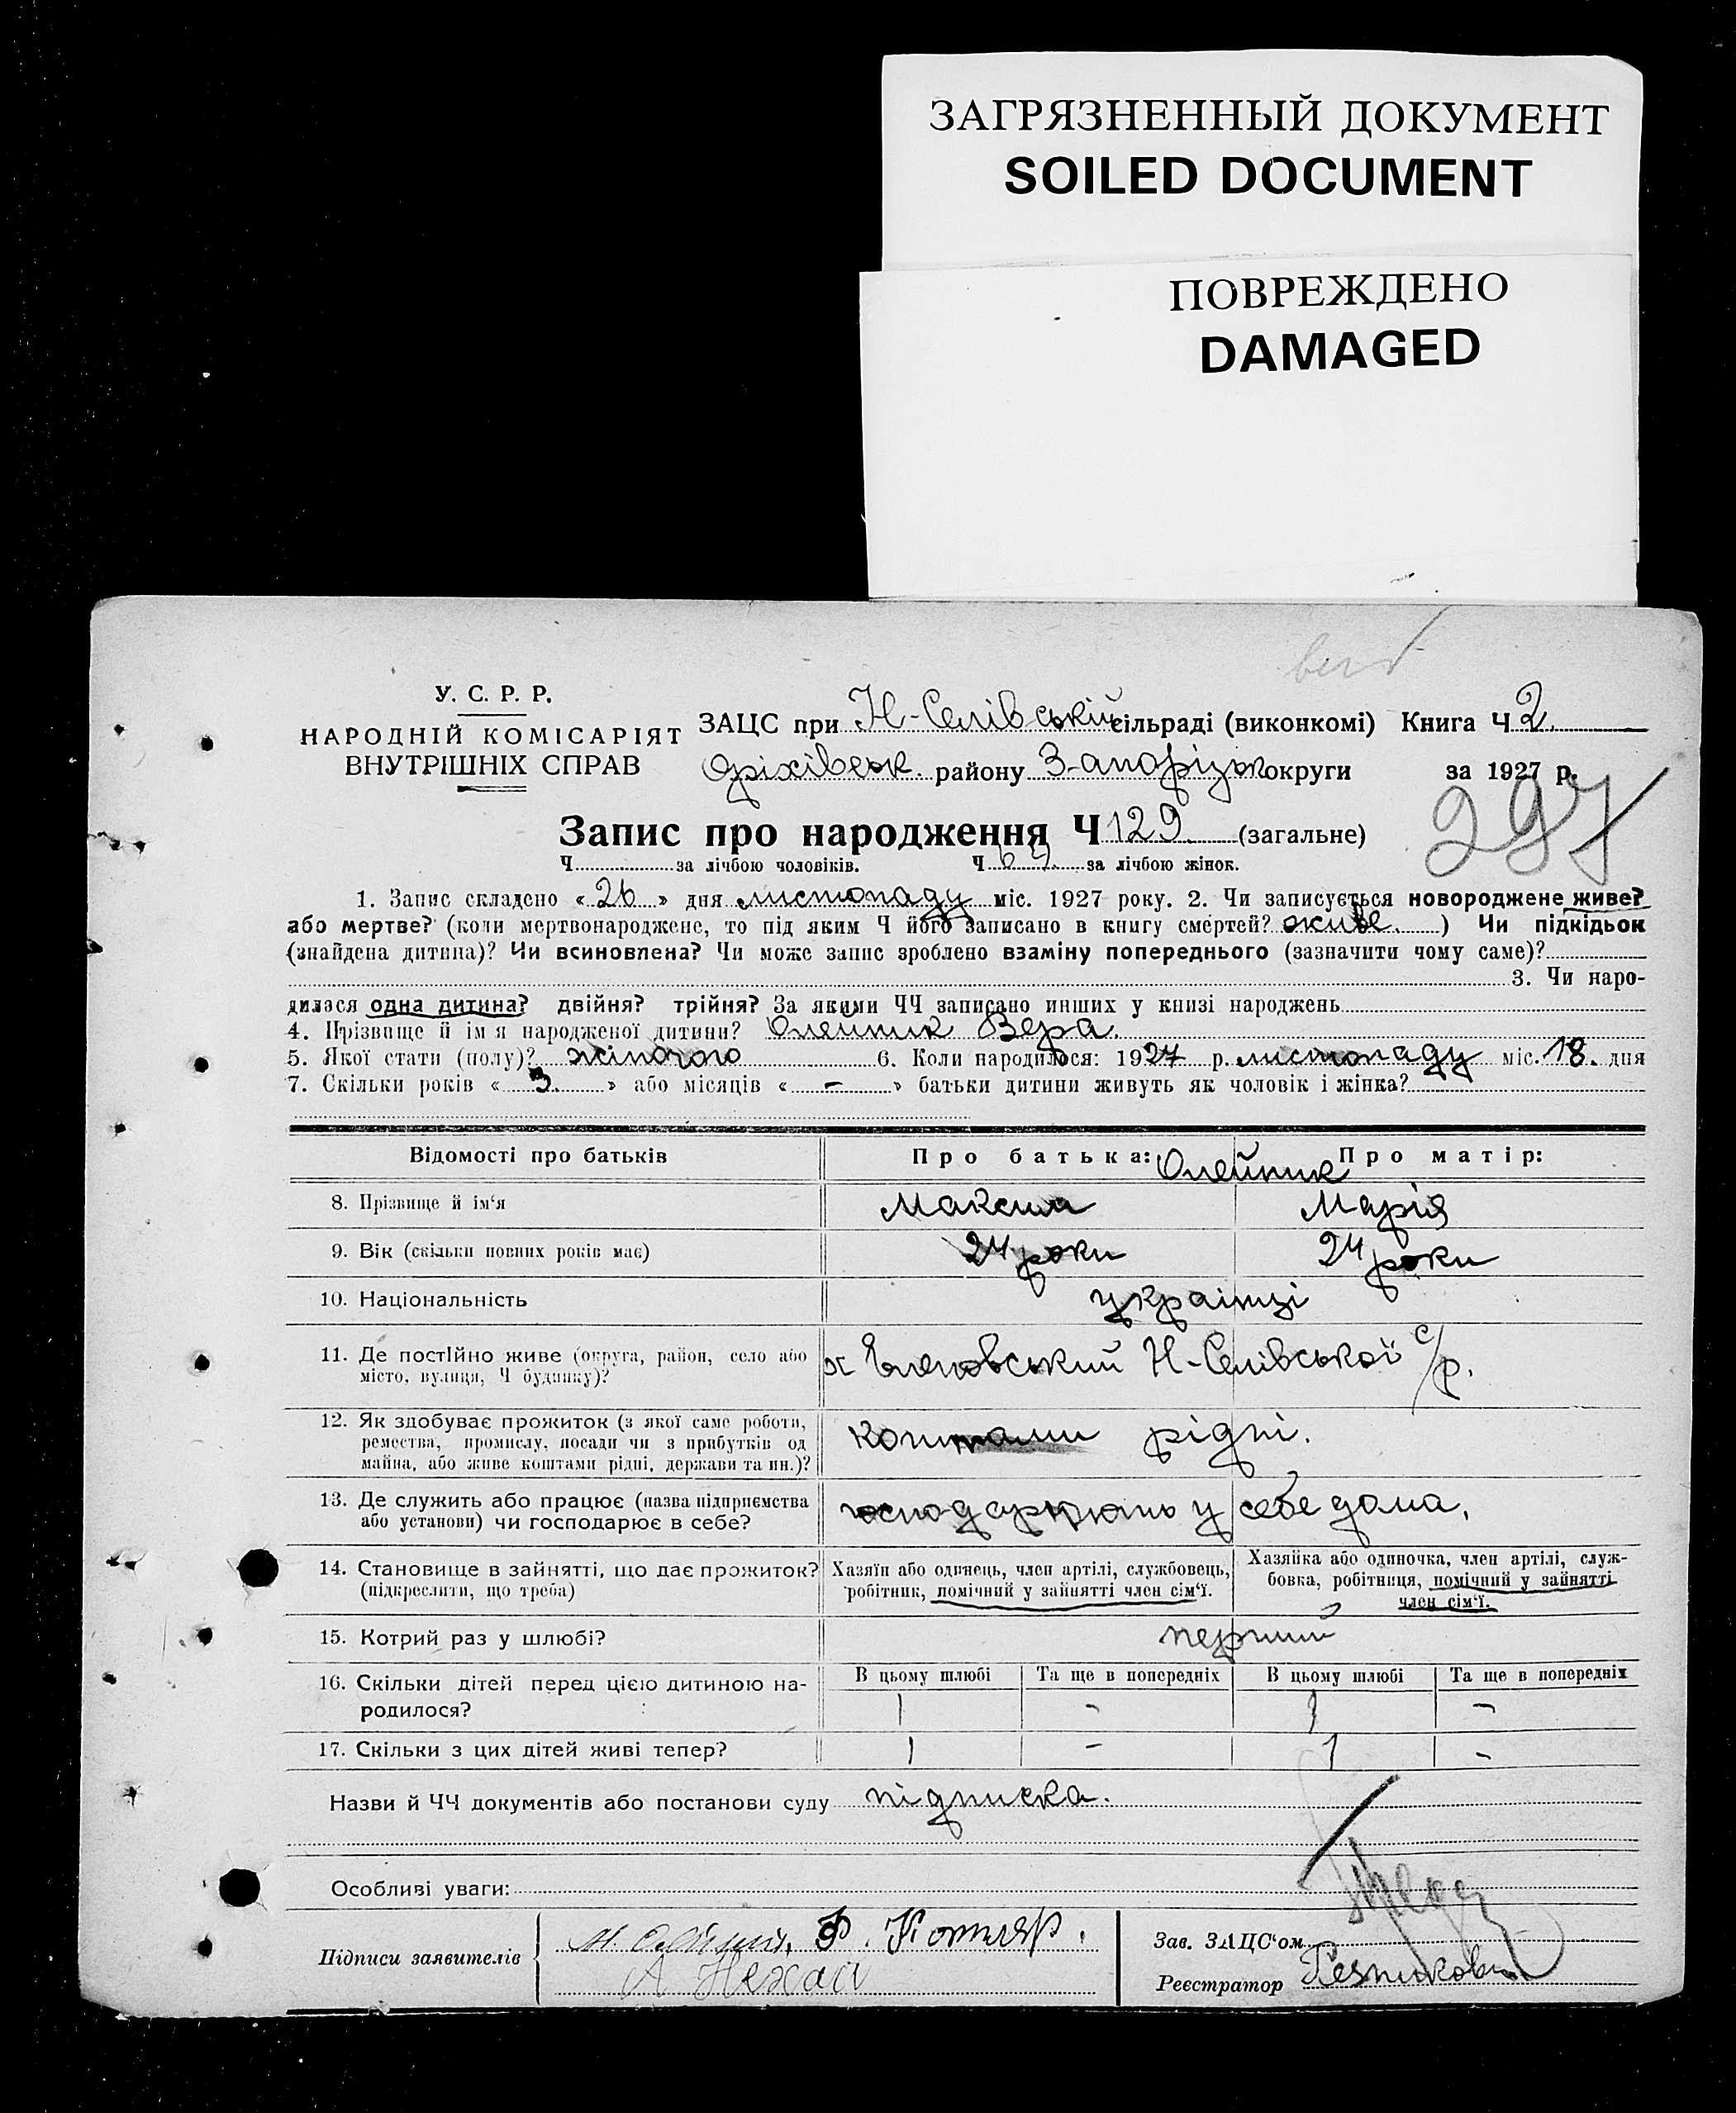 ЗАГРЯЗНЕННЫЙ ДОКУМЕНТ
SOILED DOCUMENT
ПОВРЕЖДЕНО
DAMAGED
У. С. Р. Р.
НАРОДНІЙ КОМІСАРІЯТ
ВНУТРІШНІХ СПРАВ
ЗАЦС при Н-Селівській сільраді (виконкомі) Книга Ч 2.
Оріхівськ. району З-апорізьк округи за 1927 р.
297
Запис про народження Ч 129 (загальне)
Ч за лічбою чоловіків. Ч за лічбою жінок.
1. Запис складено « 26 » дня листопаду міс. 1927 року. 2. Чи записується новороджене живе?
або мертве? (коли мертвонароджене, то під яким Ч його записано в книгу смертей? живе. ) Чи підкідьок
(знайдена дитина)? Чи всиновлена? Чи може запис зроблено взаміну попереднього (зазначити чому саме)?
3. Чи наро-
дилася одна дитина? двійня? трійня? За якими ЧЧ записано инших у книзі народжень
4. Прізвище й ім я народженої дитини? Олейник Вера.
5. Якої стати (полу)? жіночого 6. Коли народилося: 1927 р. листопаду міс. 18. дня
7. Скільки років « 3 » або місяців « – » батьки дитини живуть як чоловік і жінка?
Відомості про батьків Про батька: Олейник Про матір:
8. Прізвище й ім‘я Максим Марія
9. Вік (скільки повних років має) 24 роки 24 роки
10. Національність українці
11. Де постійно живе (округа, район, село або
місто, вулиця, Ч будинку)? х Еленовський Н-Селівської с/р.
12. Як здобуває прожиток (з якої саме роботи,
ремества, промислу, посади чи з прибутків од
майна, або живе коштами рідні, держави та ин.)? коштами рідні.
13. Де служить або працює (назва підприємства
або установи) чи господарює в себе? господарюють у себе дома,
14. Становище в зайнятті, що дає прожиток?
(підкреслити, що треба)
Хазяїн або одинець, член артілі, службовець,
робітник, помічний у зайнятті член сім‘ї.
Хазяйка або одиночка, член артілі, служ-
бовка, робітниця, помічний у зайнятті
член сім‘ї.
15. Котрий раз у шлюбі? перший
В цьому шлюбі Та ще в попередніх В цьому шлюбі Та ще в попередніх
16. Скільки дітей перед цією дитиною на-
родилося? 1 – 1 –
17. Скільки з цих дітей живі тепер? 1 – 1 –
Назви й ЧЧ документів або постанови суду підписка.
Особливі уваги:
Підписи заявителів Ф. Котляр.
А Нехай
Зав. ЗАЦС‘ом
Реєстратор